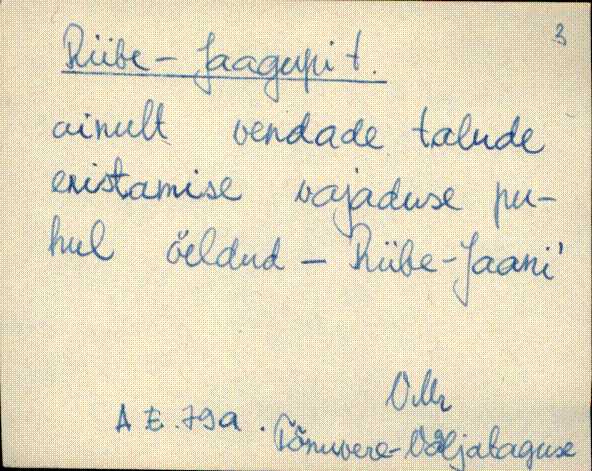 3
Riibe-Jaagupi t.
ainult vendade talude
eristamise vajaduse pu-
hul öeldud - Riibe-Jaani'
VMr
A E. 79a. Tõnuvere-Väljataguse